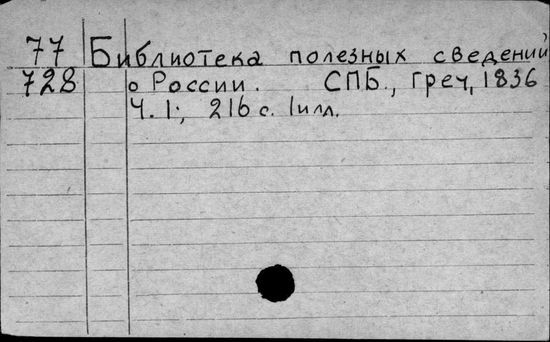 77 Библиотека полезных сведений
728 о России. СПБ., Греч, 1836
Ч. 1; 216 с. 1илл.